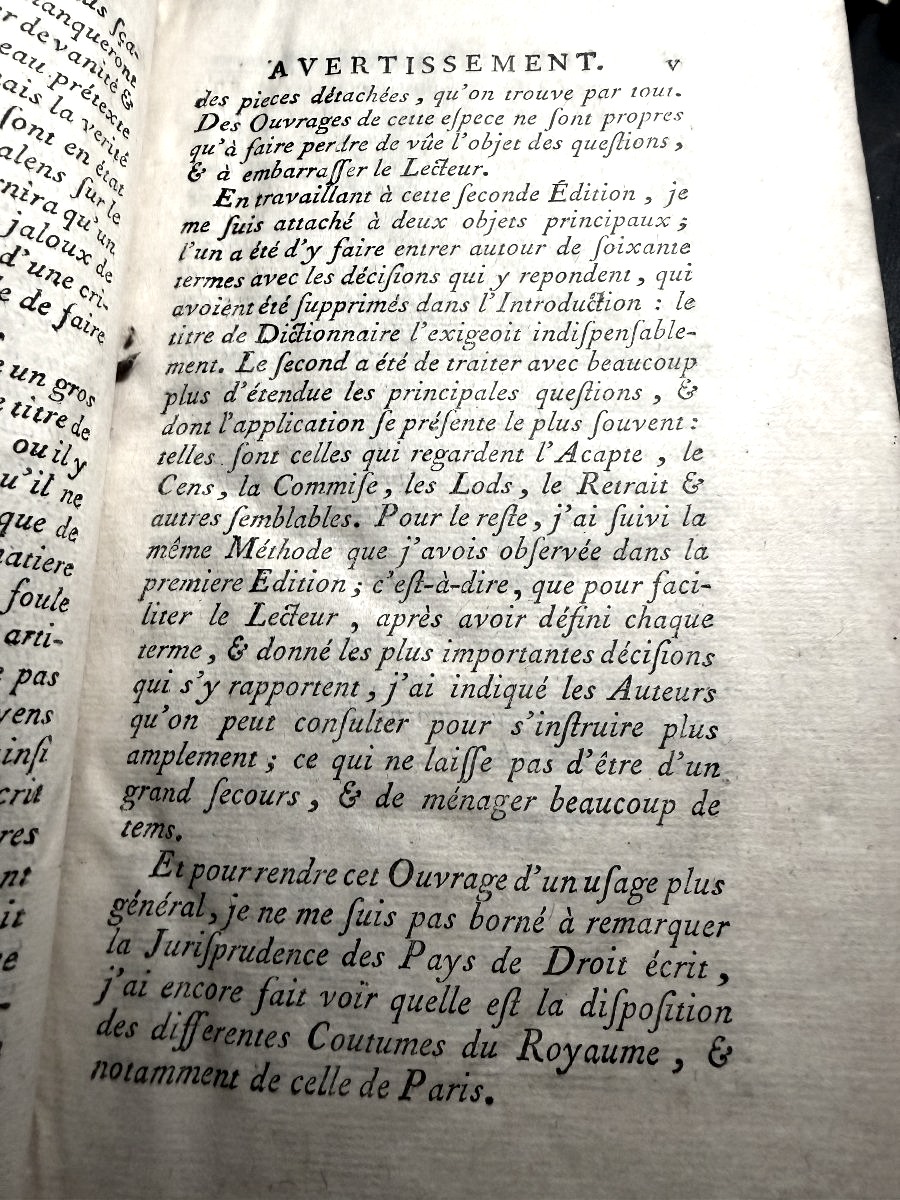 us sça-
manqueront
er de vanité &
eau prétexte
ais la verité
sont en état
alens sur le
rnira qu'un
jaloux de
d'une cri-
e de faire
un gros
titre de
ou il y
u'il ne
que de
matiere
foule
arti-
pas
yens
insi
crit
res
nt
it
AVERTISSEMENT. v
des pieces détachées, qu'on trouve par tout.
Des Ouvrages de cette eſpece ne ſont propres
qu'à faire perdre de vûe l'objet des queſtions,
& à embarraſſer le Lecteur.
En travaillant à cette ſeconde Édition, je
me ſuis attaché à deux objets principaux;
l'un a été d'y faire entrer autour de ſoixante
termes avec les déciſions qui y repondent, qui
avoient été ſupprimés dans l'Introduction : le
titre de Dictionnaire l'exigeoit indiſpenſable-
ment. Le ſecond a été de traiter avec beaucoup
plus d'étendue les principales queſtions, &
dont l'application ſe préſente le plus ſouvent :
telles ſont celles qui regardent l'Acapte, le
Cens, la Commiſe, les Lods, le Retrait &
autres ſemblables. Pour le reſte, j'ai ſuivi la
même Méthode que j'avois obſervée dans la
premiere Edition; c'eſt-à-dire, que pour faci-
liter le Lecteur, après avoir défini chaque
terme, & donné les plus importantes déciſions
qui s'y rapportent, j'ai indiqué les Auteurs
qu'on peut conſulter pour s'inſtruire plus
amplement; ce qui ne laiſſe pas d'être d'un
grand ſecours, & de ménager beaucoup de
tems.
Et pour rendre cet Ouvrage d'un uſage plus
général, je ne me ſuis pas borné à remarquer
la Juriſprudence des Pays de Droit écrit,
j'ai encore fait voir quelle eſt la diſpoſition
des differentes Coutumes du Royaume, &
notamment de celle de Paris.